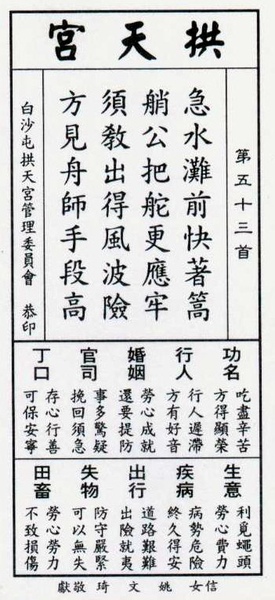 拱天宮
第五十三首
急水灘前快著篙
艄公把舵更應牢
須教出得風波險
方見舟師手段高
白沙屯拱天宮管理委員會 恭印
功名
吃盡辛苦
方得顯榮
行人
行人遲滯
方有好音
婚姻
勞心成就
還要提防
官司
事多驚疑
挽回須急
丁口
存心行善
可保安寧
生意
利覓蠅頭
勞心費力
疾病
病勢危險
終久得安
出行
道路艱難
出險就夷
失物
防守嚴緊
可以無失
田畜
勞心勞力
不致損傷
信女 姚文琦 敬獻